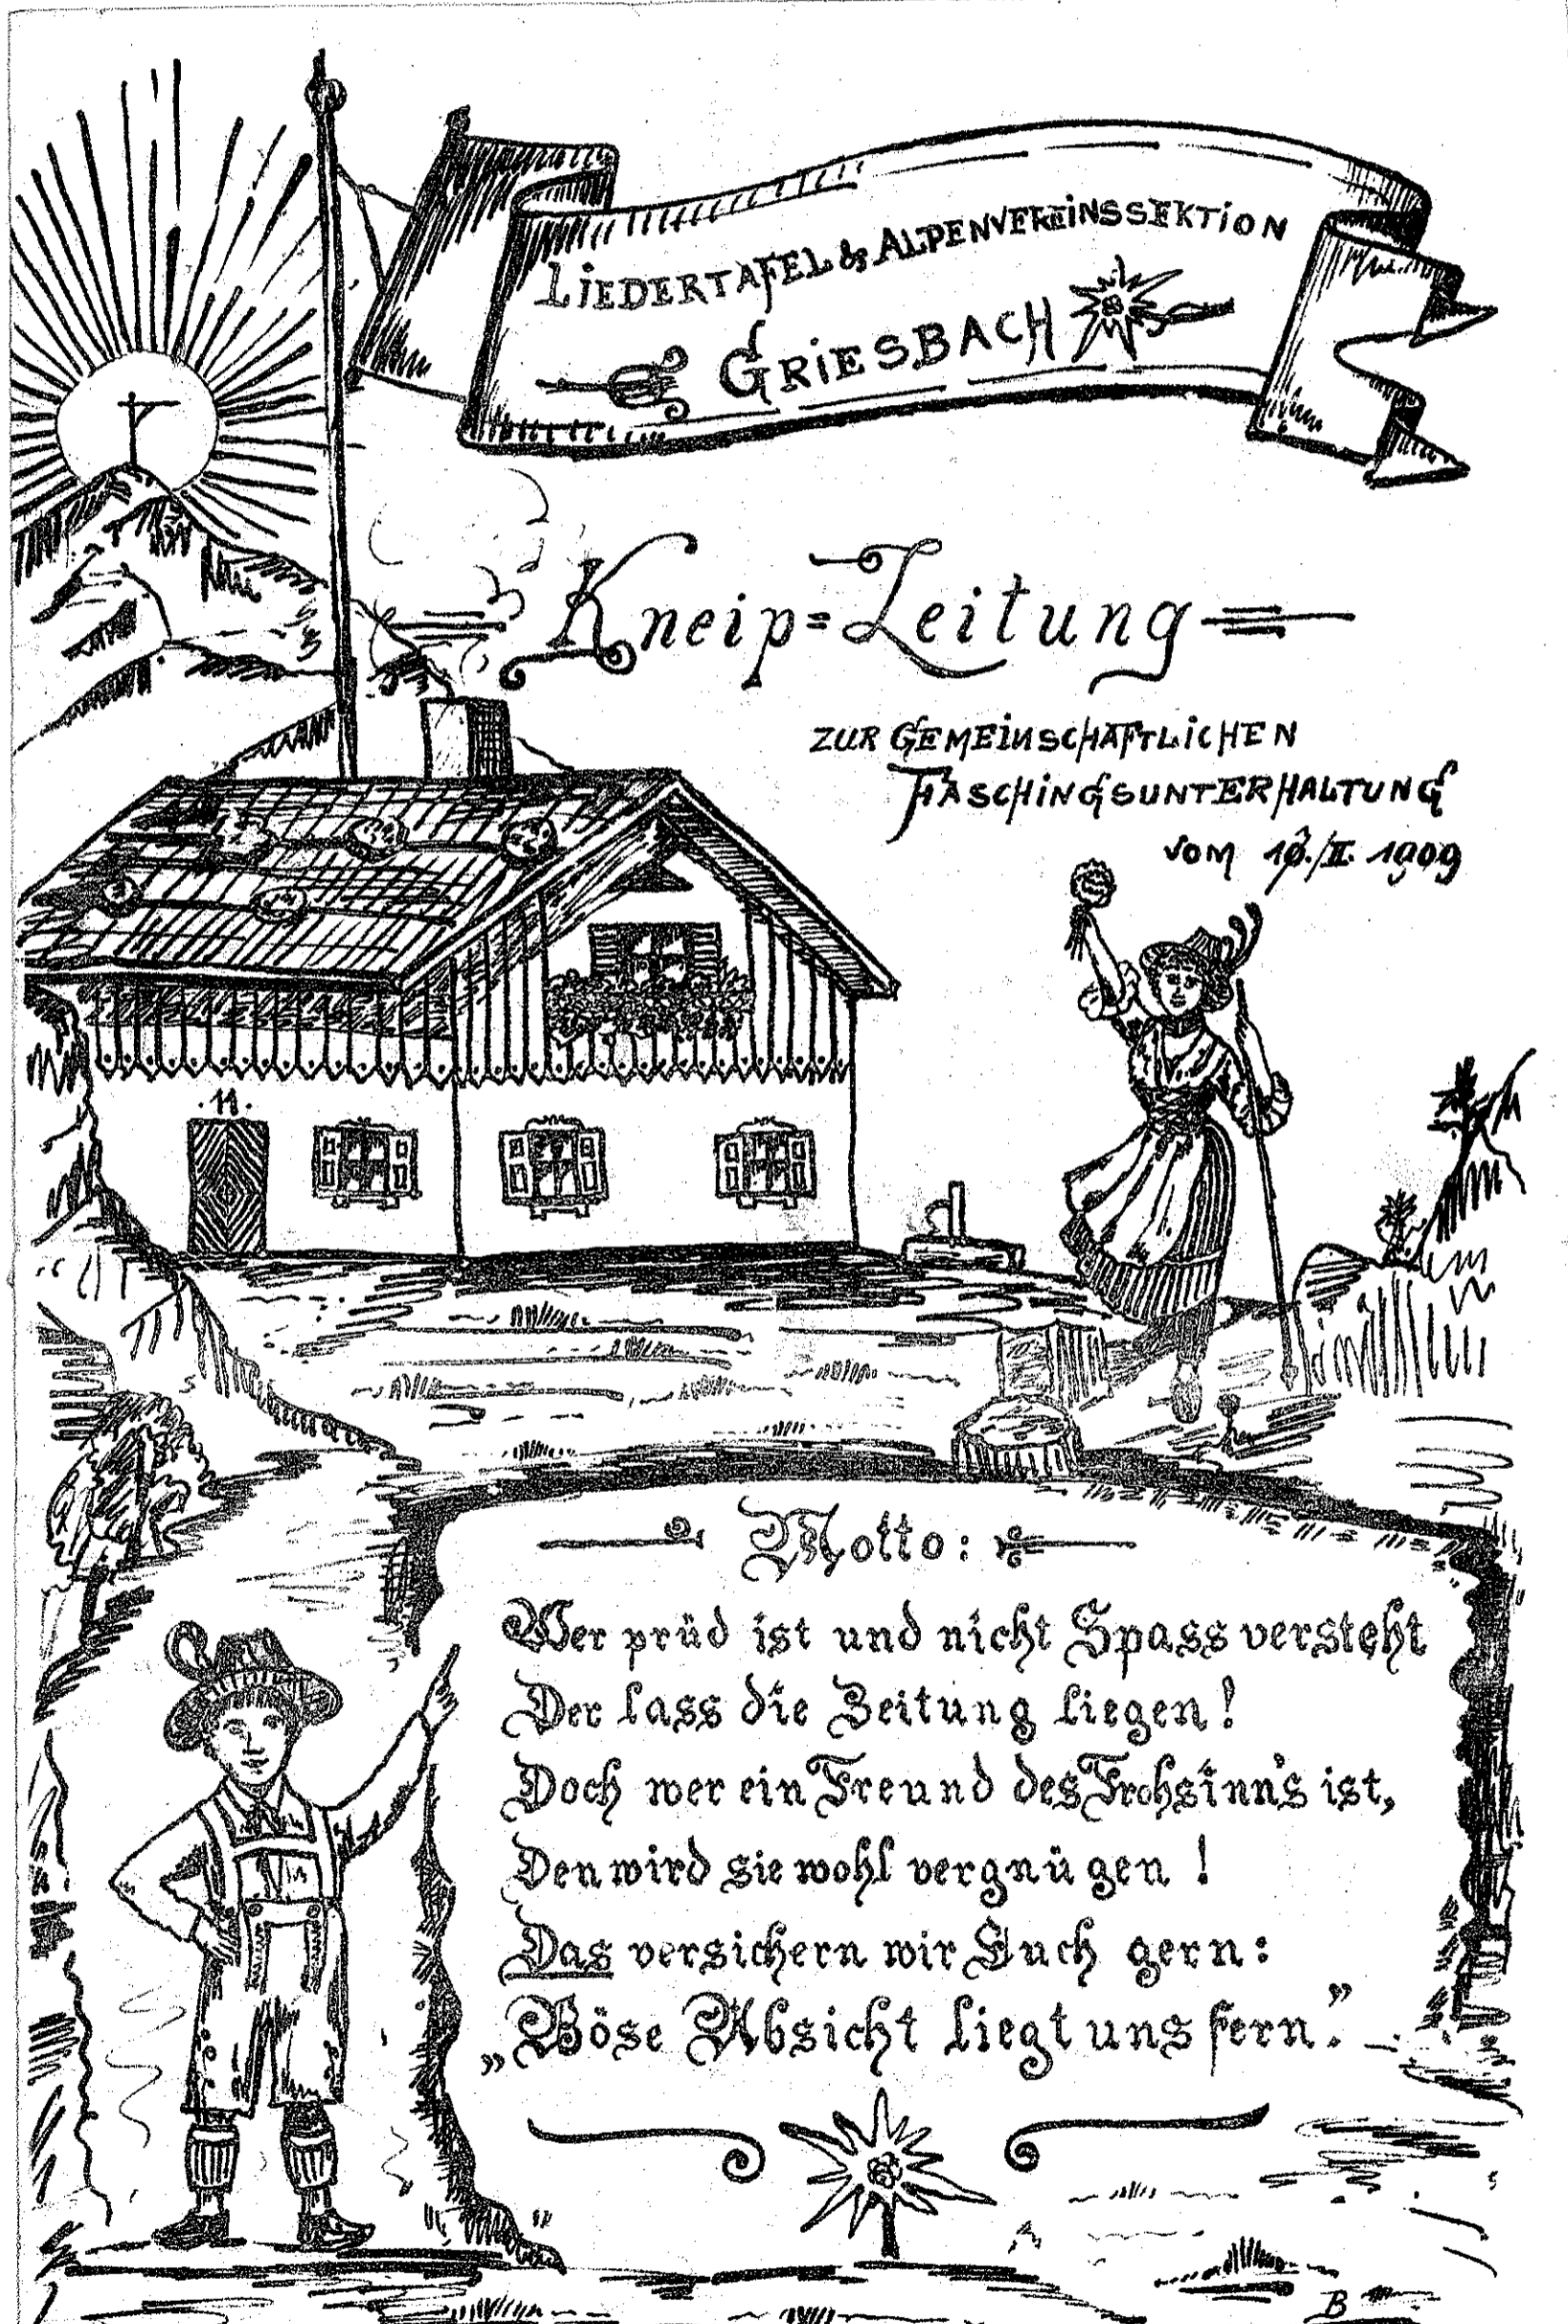 LIEDERTAFEL & ALPENVEREINSSEKTION
GRIESBACH
Kneip=Zeitung
ZUR GEMEINSCHAFTLICHEN
FASCHINGSUNTERHALTUNG
VOM /II. 1909
11
Motto:
Wer prüd ist und nicht Spass versteht
Der lass die Zeitung liegen!
Doch wer ein Freund des Frohsinn's ist,
Den wird sie wohl vergnügen!
Das versichern wir Euch gern:
„Böse Absicht liegt uns fern."
B